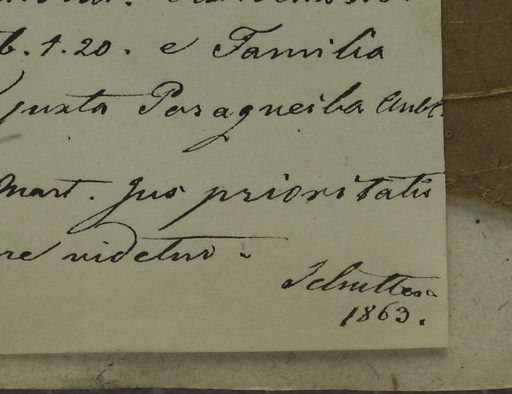 b. t. 20. e Familia
juxta Paragneiba
Mart. Jus prioritatis
re videtur.
1863.